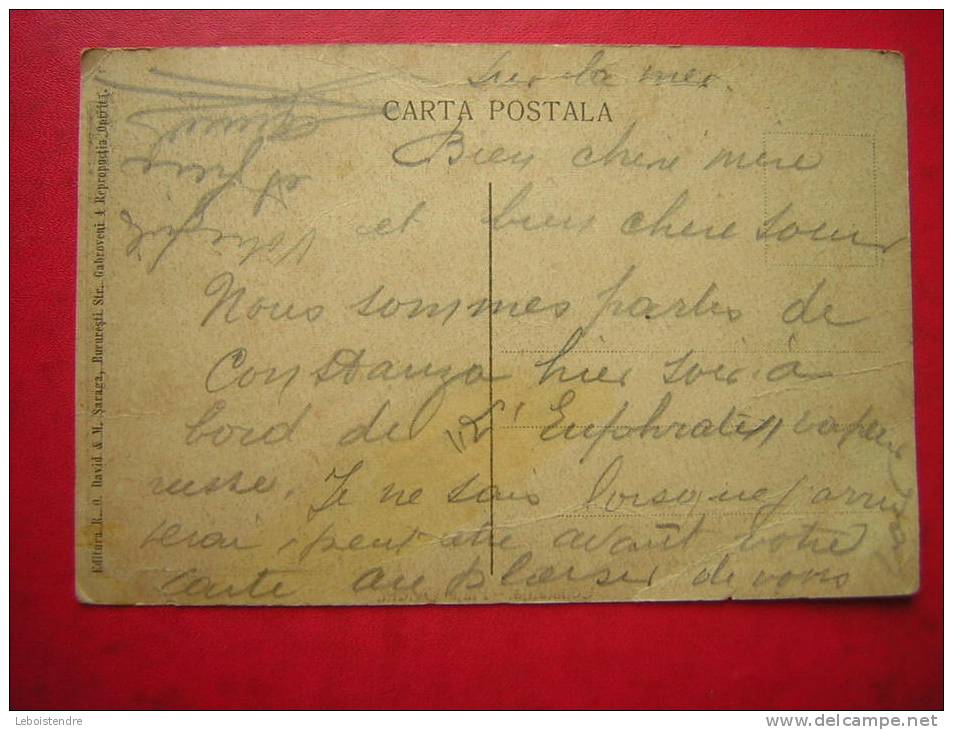 Sur la mer
CARTA POSTALA
Bien chère mère
et bien chère soeur
Nous sommes partis de
Constanza hier soir à
bord de "L'Euphrate" vapeur
russe. Je ne sais lorsque j'arri
verai, peut être avant votre
carte au plaisir de vous
Votre fils
et frère
Editura R. O. David & M. Şaraga, Bucureşti, Str. Gabroveni 4 Reproducţia Oprită.
Leboistendre
www.delcampe.net